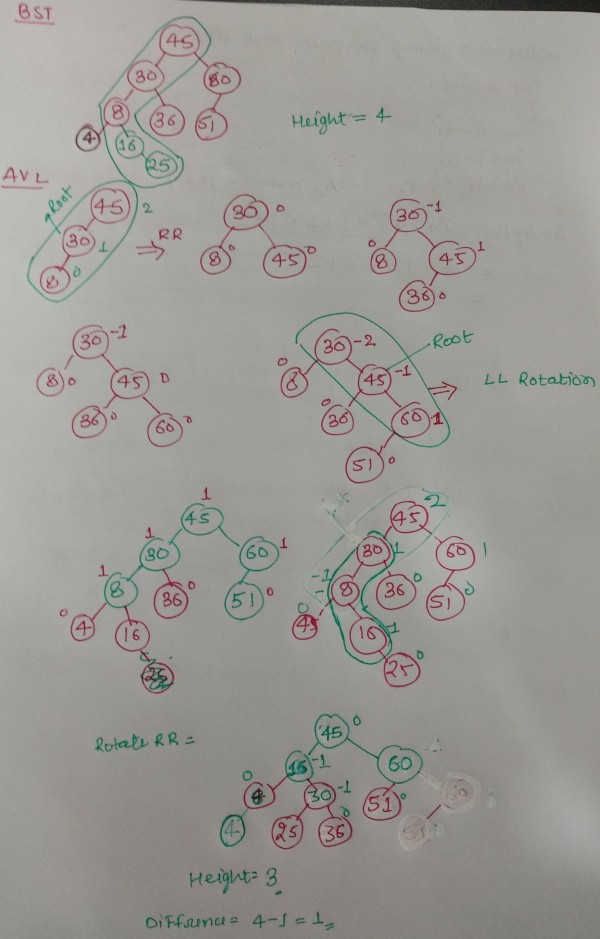 BST
45
30 80
8 36 51
4 16 25
Height = 4
AVL
Root 45 2
30 1
8 0
⇒ RR
30 0
8 0 45 0
30 -1
0 8 45 1
36 0
30 -1
8 0 45 0
36 0 60 0
30 -2 Root
0 8 45 -1
0 36 60 1
51 0
⇒ LL Rotation
1 45
1 30 60 1
1 8 36 0 51 0
0 4 16
25
45 2
30 1 60 1
-1 8 36 0 51 0
0 16 -1
25 0
Rotate RR =
45 0
16 -1 60
0 30 -1 51 0
4 25 36 0
Height = 3
Diffrence = 4-1 = 1